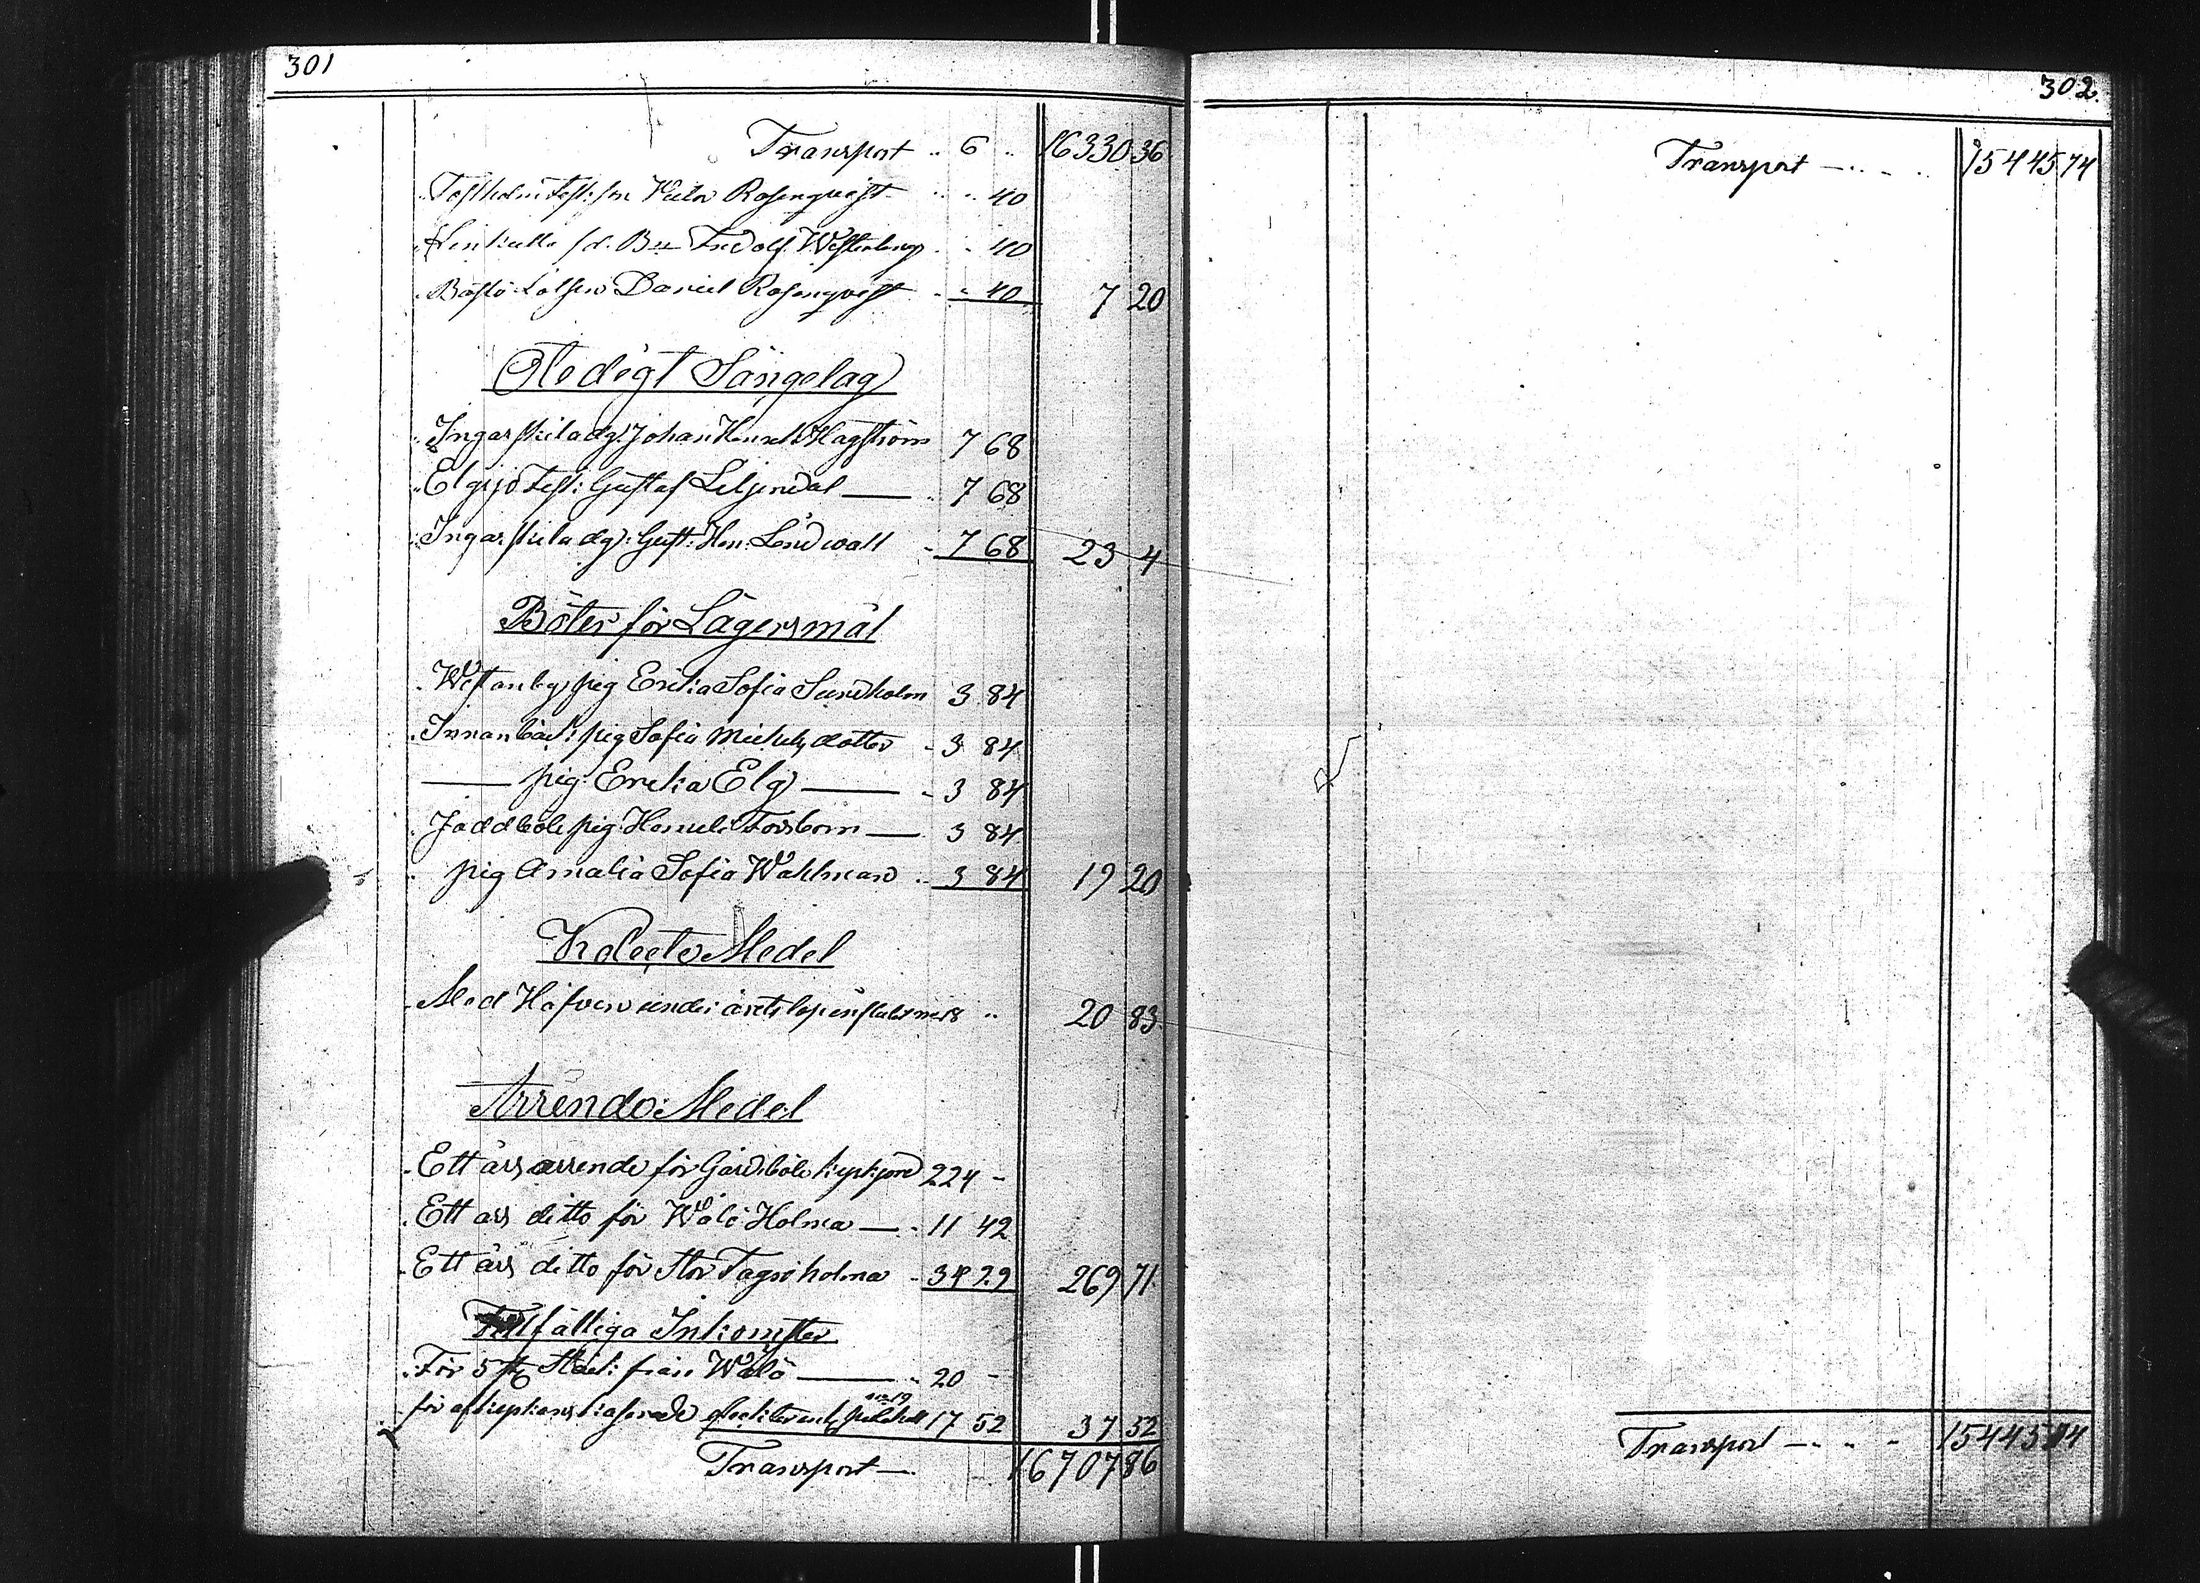 301
Transport " 6 " 16330 36
Victor Rosenqvist " " 40
Fredolf Westerberg " " 40
Båstö Daniel Rosenqvist " " 40 7 20
Oledigt Sängelag
Ingarskila dg: Johan Henrik Hagström 7 68
Elgsjö Gustaf Liljendal — " 7 68
Ingarskila dg: Gust: Hen: Lindwall " 7 68 23 4
Böter för Lägersmål
Westanby pig Erika Sofia Sundholm 3 84
Innanbäck pig Sofia Michelsdotter " 3 84
— pig Erika Elg — " 3 84
Jaddböle pig Forsbom — 3 84
pig Amalia Sofia Wahlman " 3 84 19 20
Kolecto Medel
Med Håfven under årets lopp N:o 18 " 20 83
Arrendo: Medel
Ett års arrende för Gårdsböle 224 -
Ett års ditto för Wålö Holma — " 11 42
Ett års ditto för Stor Tagsö holma " 34 29 269 71
Tillfälliga Inkomster
För 5 från Wålö — " 20 -
för N:o 19 17 52 37 52
Transport — 16707 86
302.
Transport — " - " 15445 74
Transport — " " - 15445 74